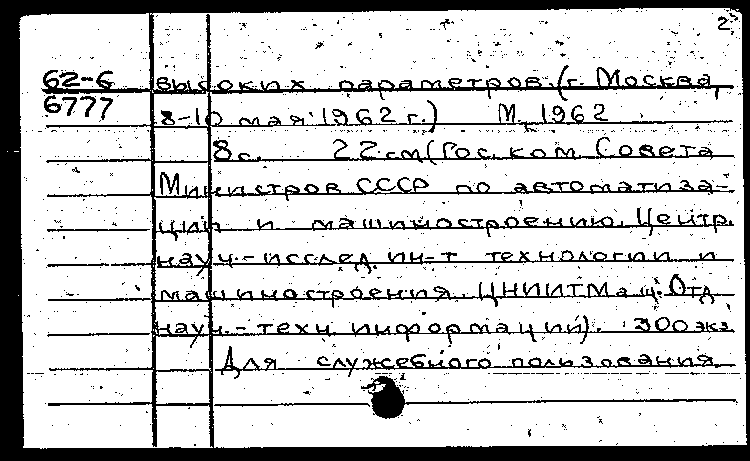 2.
62-6 высоких параметров. (г. Москва,
6777 8-10 мая 1962 г.) М., 1962
8с. 22 см (Гос. ком. Совета
Министров СССР по автоматиза-
ции и машиностроению. Центр.
науч.-исслед. ин-т технологии и
машиностроения. ЦНИИТМаш. Отд.
науч.-техн. информации). 300 экз.
Для служебного пользования